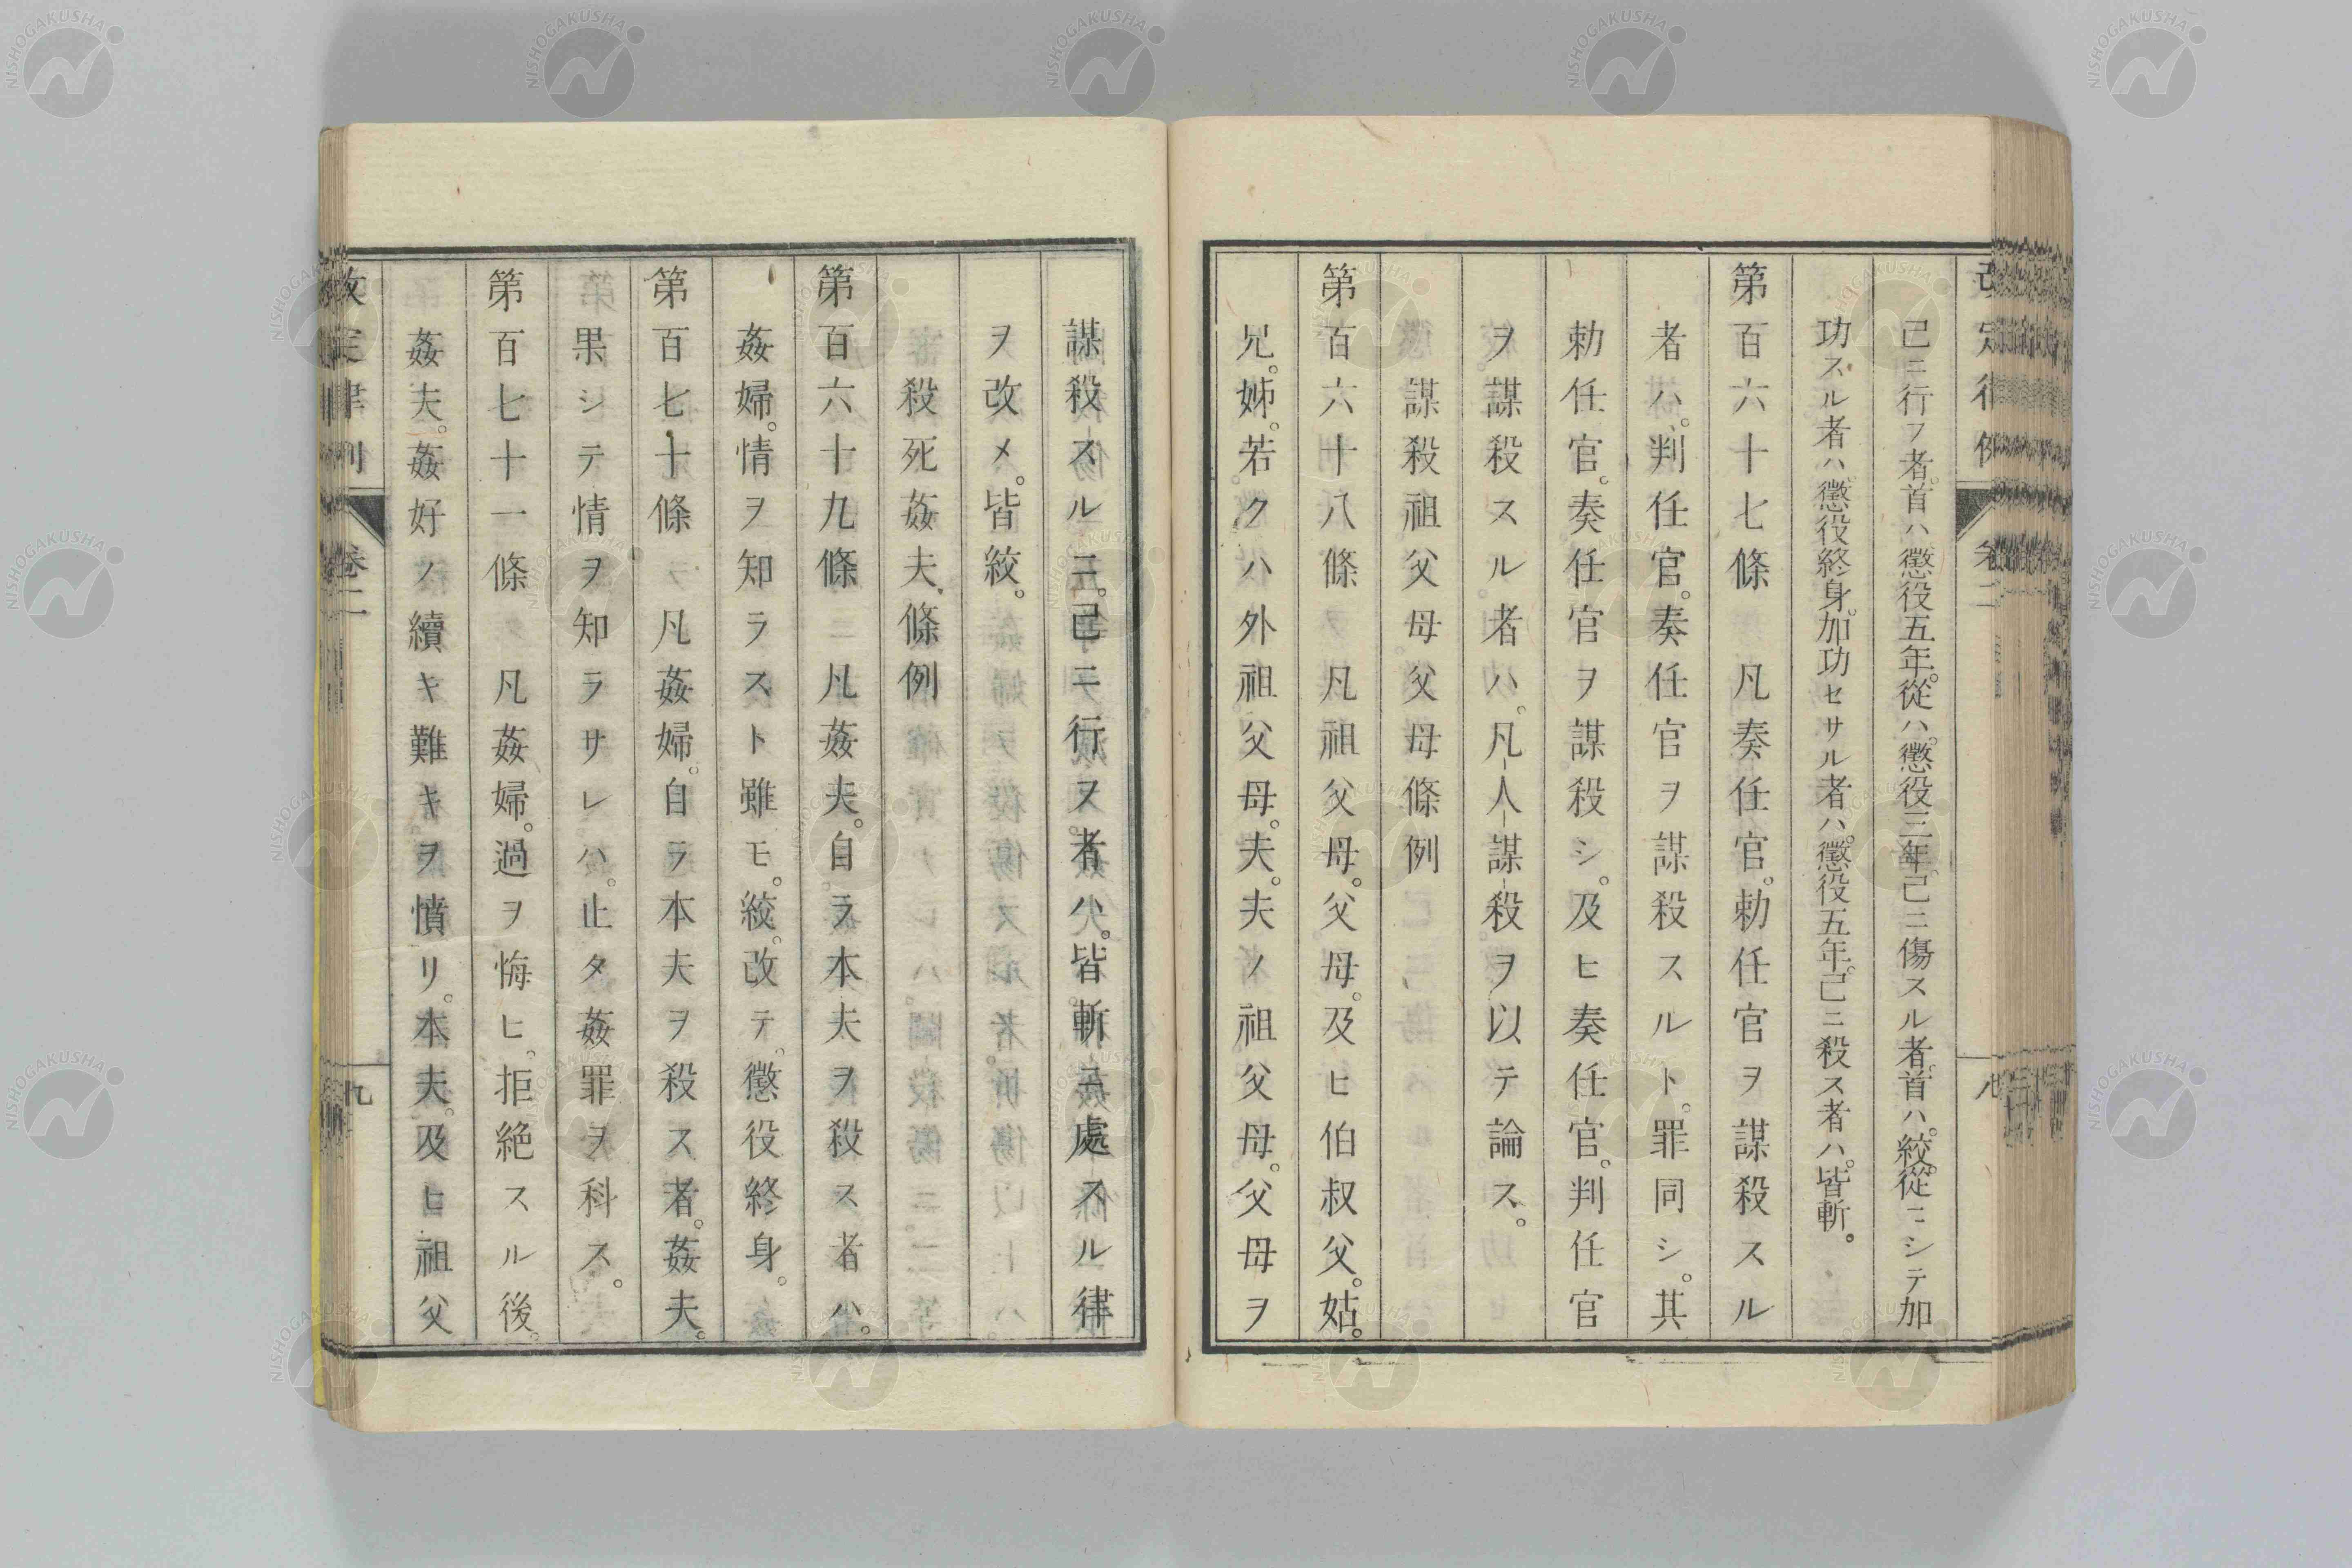 已ニ行フ者。首ハ懲役五年。從ハ。懲役三年。已ニ傷スル者。首ハ。絞。從ニシテ加
功スル者ハ。懲役終身。加功セサル者ハ。懲役五年。已ニ殺ス者ハ。皆斬。
第百六十七條 凡奏任官。勅任官ヲ謀殺スル
者ハ。判任官。奏任官ヲ謀殺スルト。罪同シ。其
勅任官。奏任官ヲ謀殺シ。及ヒ奏任官。判任官
ヲ謀殺スル者ハ。凡人謀殺ヲ以テ論ス。
謀殺祖父母父母條例
第百六十八條 凡祖父母。父母。及ヒ伯叔父。姑。
兄。姊。若クハ外祖父母。夫。夫ノ祖父母。父母ヲ
謀殺スルニ。已ニ行フ者ハ。皆斬ニ處スル律
ヲ改メ。皆絞。
殺死姦夫條例
第百六十九條 凡姦夫。自ラ本夫ヲ殺ス者ハ。
姦婦。情ヲ知ラスト雖モ。絞。改テ。懲役終身。
第百七十條 凡姦婦。自ラ本夫ヲ殺ス者。姦夫。
果シテ情ヲ知ラサレハ。止タ姦罪ヲ科ス。
第百七十一條 凡姦婦。過ヲ悔ヒ。拒絶スル後。
姦夫。姦好ノ續キ難キヲ憤リ。本夫。及ヒ祖父
改定律例 卷二 九
NISHOGAKUSHA